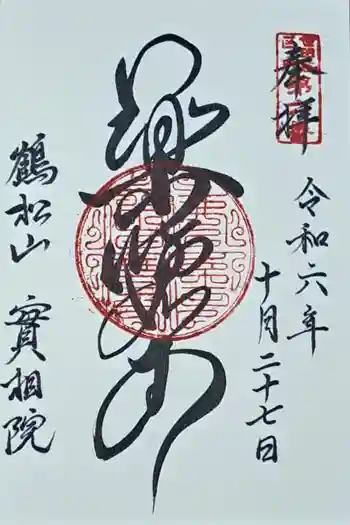 奉拝
令和六年
十月二十七日
薬師如来
鶴松山 實相院